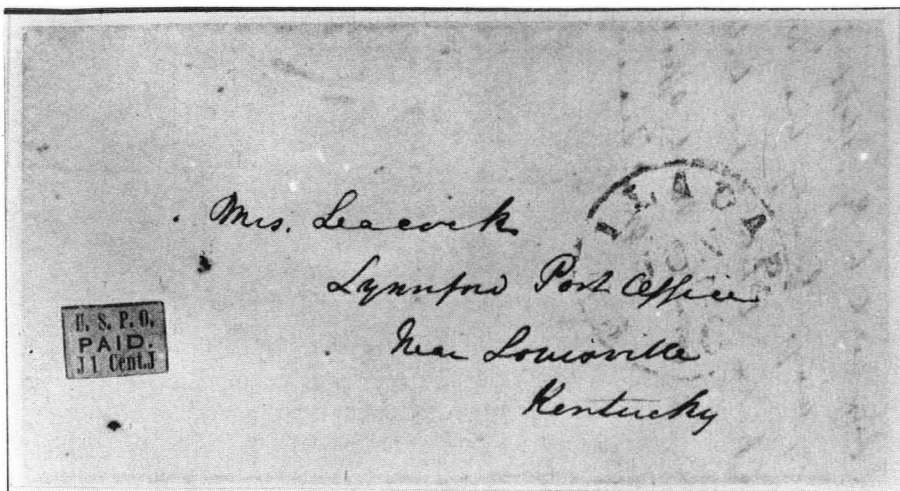 Mrs. Leacock
Lynnford Post Office
Near Louisville
Kentucky
U. S. P. O.
PAID.
J 1 Cent. J
JUN